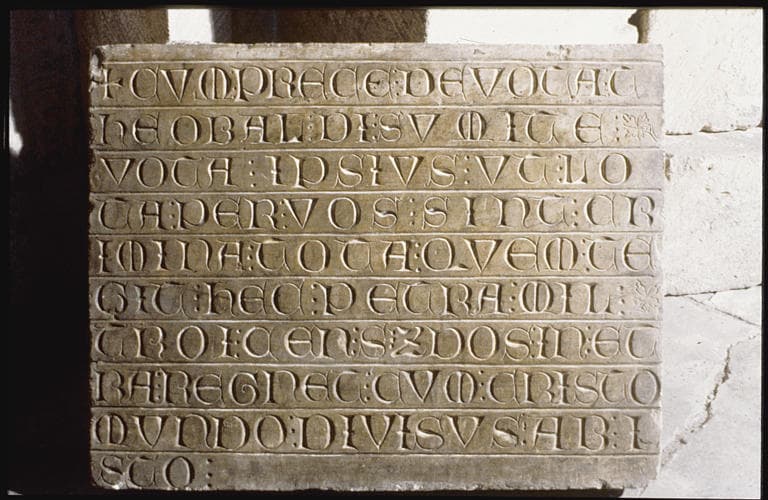 +CVM:PRECE:DEVOTA:T
HEOBAL:DI:SVMITE:
VOTA:IPSIVS:VT:LO
TA:PER:VOS:SINT:CR
IMINA:TOTA:QVEM:TE
GIT:HEC:PETRA:MIL:
TROI:CEN:S:Z DOS:IN:ET
RA:REGNET:CVM:CRISTO
MVNDO:DIVISVS:AB:I
STO: